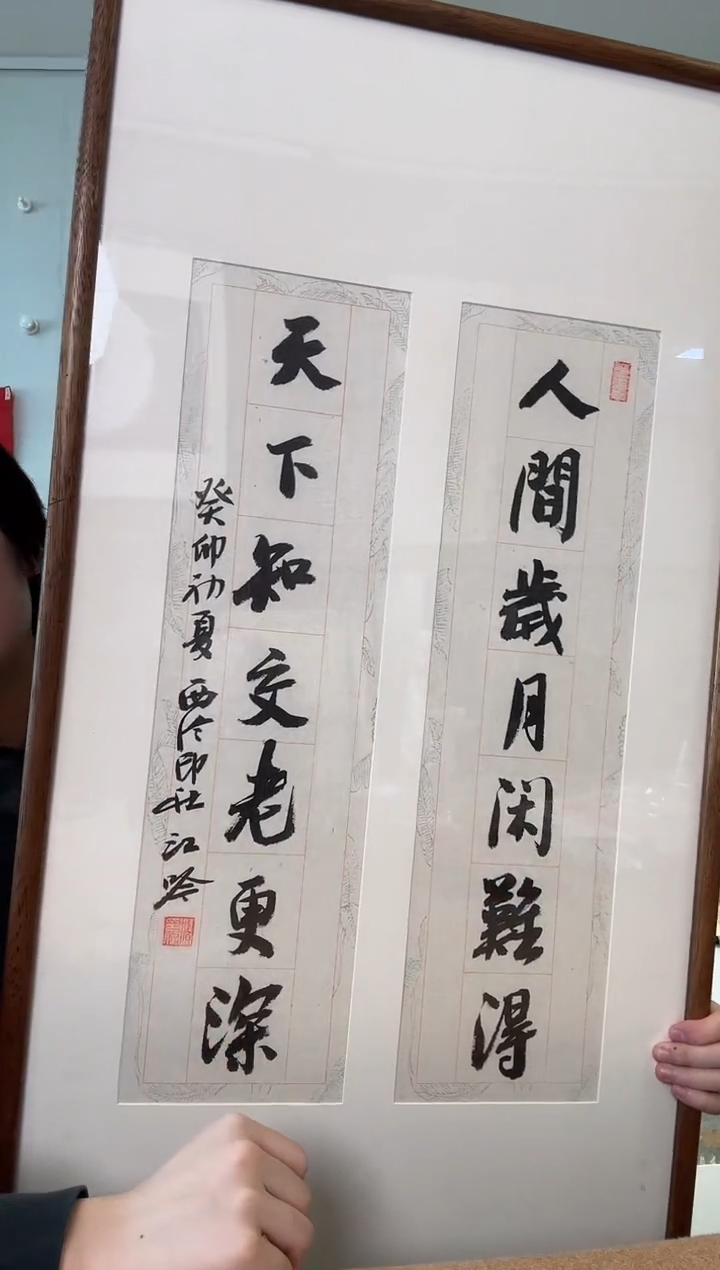 人間歲月闲難得
天下知交老更深
癸卯初夏西泠印社江吟